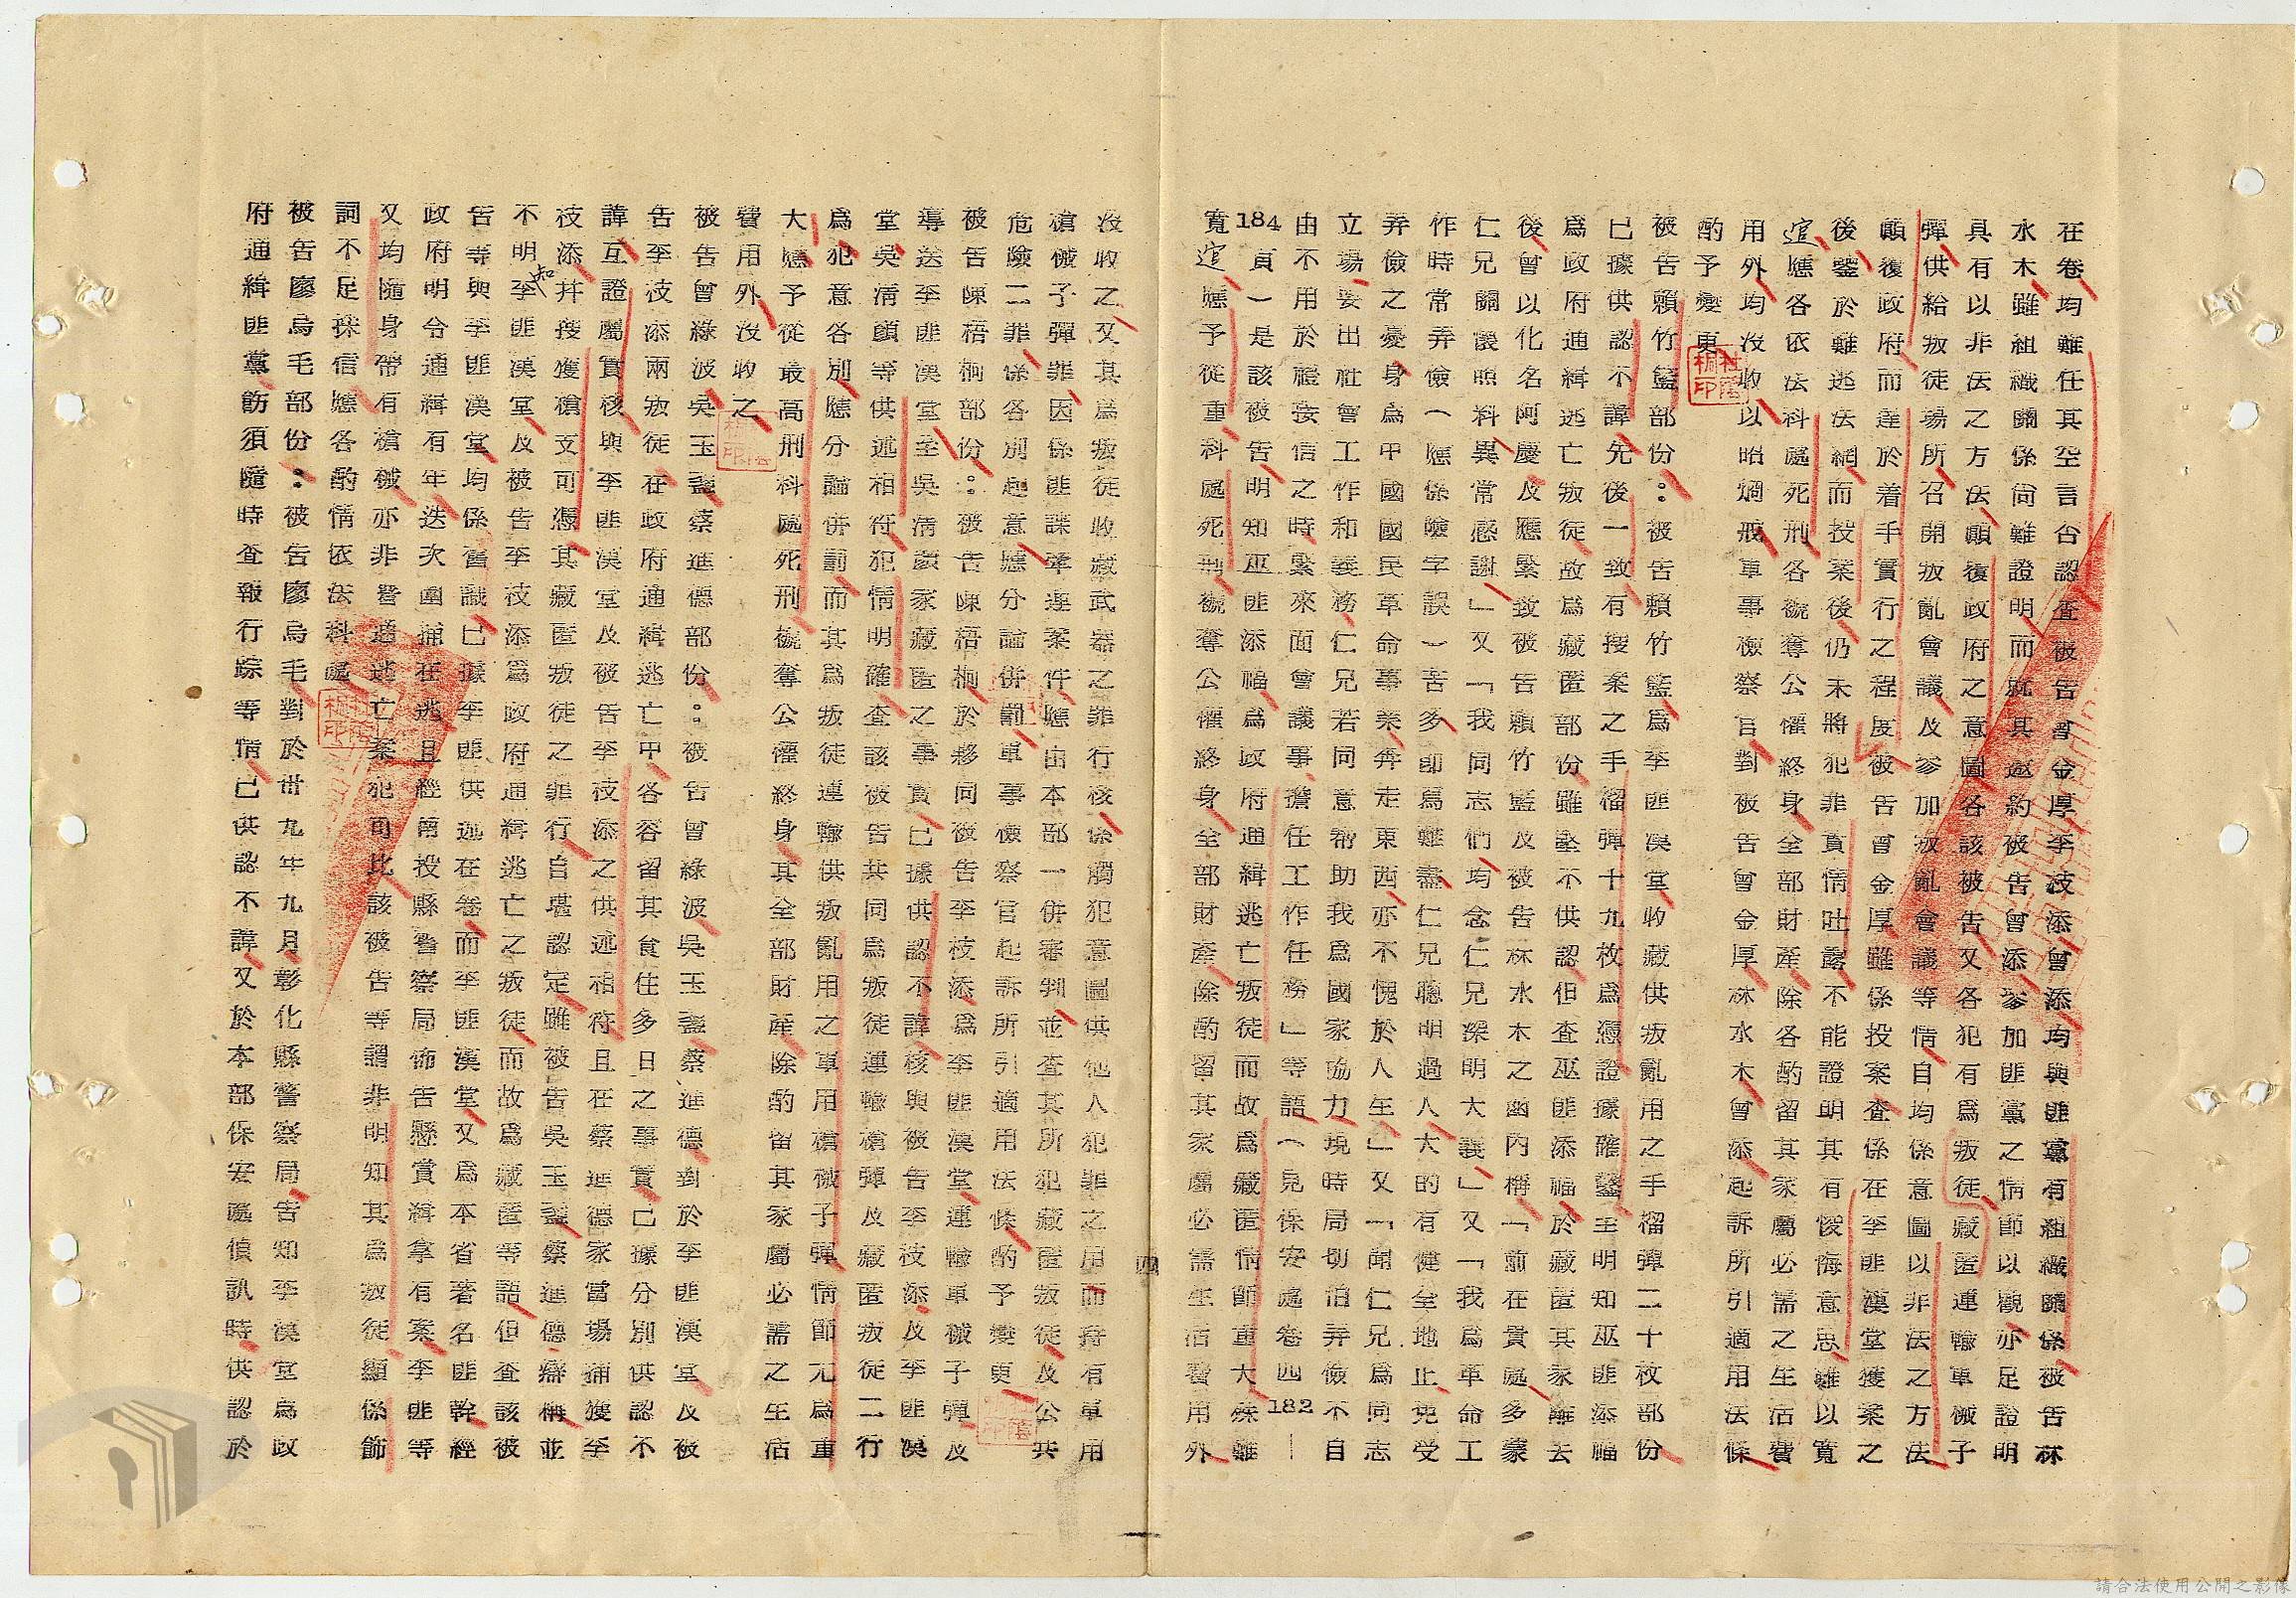 在卷均難任其空言否認查被告曾金厚李波添曾添均與匪黨有組織關係被告林
水木雖組織關係尚難證明而就其邀約被告曾添參加匪黨之情節以觀亦足證明
具有以非法之方法顛覆政府之意圖各該被告又各犯有為叛徒藏匿連輸軍械子
彈供給叛徒場所召開叛亂會議及參加叛亂會議等情自均係意圖以非法之方法
顛覆政府而達於着手實行之程度被告曾金厚雖係投案查係在李匪漢堂獲案之
後鑒於難逃法網而投案後仍未將犯罪實情吐露不能證明其有悛悔意思難以寬
逭應各依法科處死刑各褫奪公權終身全部財產除各酌留其家屬必需之生活費
用外均沒收以昭烱戒軍事檢察官對被告曾金厚林水木曾添起訴所引適用法條
酌予變更
被告賴竹籃部份：被告賴竹籃為李匪漢堂收藏供叛亂用之手榴彈二十枚部份
已據供認不諱先後一致有搜案之手榴彈十九枚為憑證據確鑿至明知巫匪添福
為政府通緝逃亡叛徒故為藏匿部份雖堅不供認但查巫匪添福於藏匿其家離去
後曾以化名阿慶及應緊致被告賴竹籃及被告林水木之函內稱「前在貴處多蒙
仁兄關護照料異常感謝」又「我同志們均念仁兄深明大義」又「我為革命工
作時常弄儉（應係險字誤）苦多即為難盡仁兄聰明過人大的有健全地止免受
弄儉之憂身為甲國國民革命事業奔走東西亦不愧於人生」又「聞仁兄為同志
立場妥出社會工作和義務仁兄若同意幫助我為國家協力現時局切怕弄儉不自
由不用於禮按信之時緊來面會議事擔任工作任務」等語（見保安處卷四182—
184頁）是該被告明知巫匪添福為政府通緝逃亡叛徒而故為藏匿情節重大殊難
寬逭應予從重科處死刑褫奪公權終身全部財產除酌留其家屬必需生活費用外
沒收之又其為叛徒收藏武器之罪行核係觸犯意圖供他人犯罪之用而持有軍用
槍械子彈罪因係匪諜牽連案件應由本部一併審判並查其所犯藏匿叛徒及公共
危險二罪係各別起意應分論併罰軍事檢察官起訴所引適用法條酌予變更
被告陳梧桐部份：被告陳梧桐於移同被告李枝添為李匪漢堂連輸軍械子彈及
導送李匪漢堂至吳清顏家藏匿之事實已據供認不諱核與被告李枝添及李匪漢
堂吳清顏等供述相符犯情明確查該被告共同為叛徒連輸槍彈及藏匿叛徒二行
為犯意各別應分論併罰而其為叛徒連輸供叛亂用之軍用槍械子彈情節尤為重
大應予從最高刑科處死刑褫奪公權終身其全部財產除酌留其家屬必需之生活
費用外沒收之
被告曾綠波吳玉盞蔡進德部份：被告曾綠波吳玉盞蔡進德對於李匪漢堂及被
告李枝添兩叛徒在政府通緝逃亡中各容留其食住多日之事實已據分別供認不
諱互證屬實核與李匪漢堂及被告李枝添之供述相符且在蔡進德家當場捕獲李
枝添并搜獲槍支可憑其藏匿叛徒之罪行自堪認定雖被告吳玉盞蔡進德辯稱並
不明知李匪漢堂及被告李枝添為政府通緝逃亡之叛徒而故為藏匿等語但查該被
告等與李匪漢堂均係舊識已據李匪供述在卷而李匪漢堂又為本省著名匪幹經
政府明令通緝有年迭次圍捕在逃且經前投縣警察局佈告懸賞緝拿有案李匪等
又均隨身帶有槍械亦非普通逃亡案犯可比該被告等謂非明知其為叛徒顯係飾
詞不足採信應各酌情依法科處
被告廖烏毛部份：被告廖烏毛對於卅九年九月彰化縣警察局告知李漢堂為政
府通緝匪黨飭須隨時查報行踪等情已供認不諱又於本部保安處偵訊時供認於
四